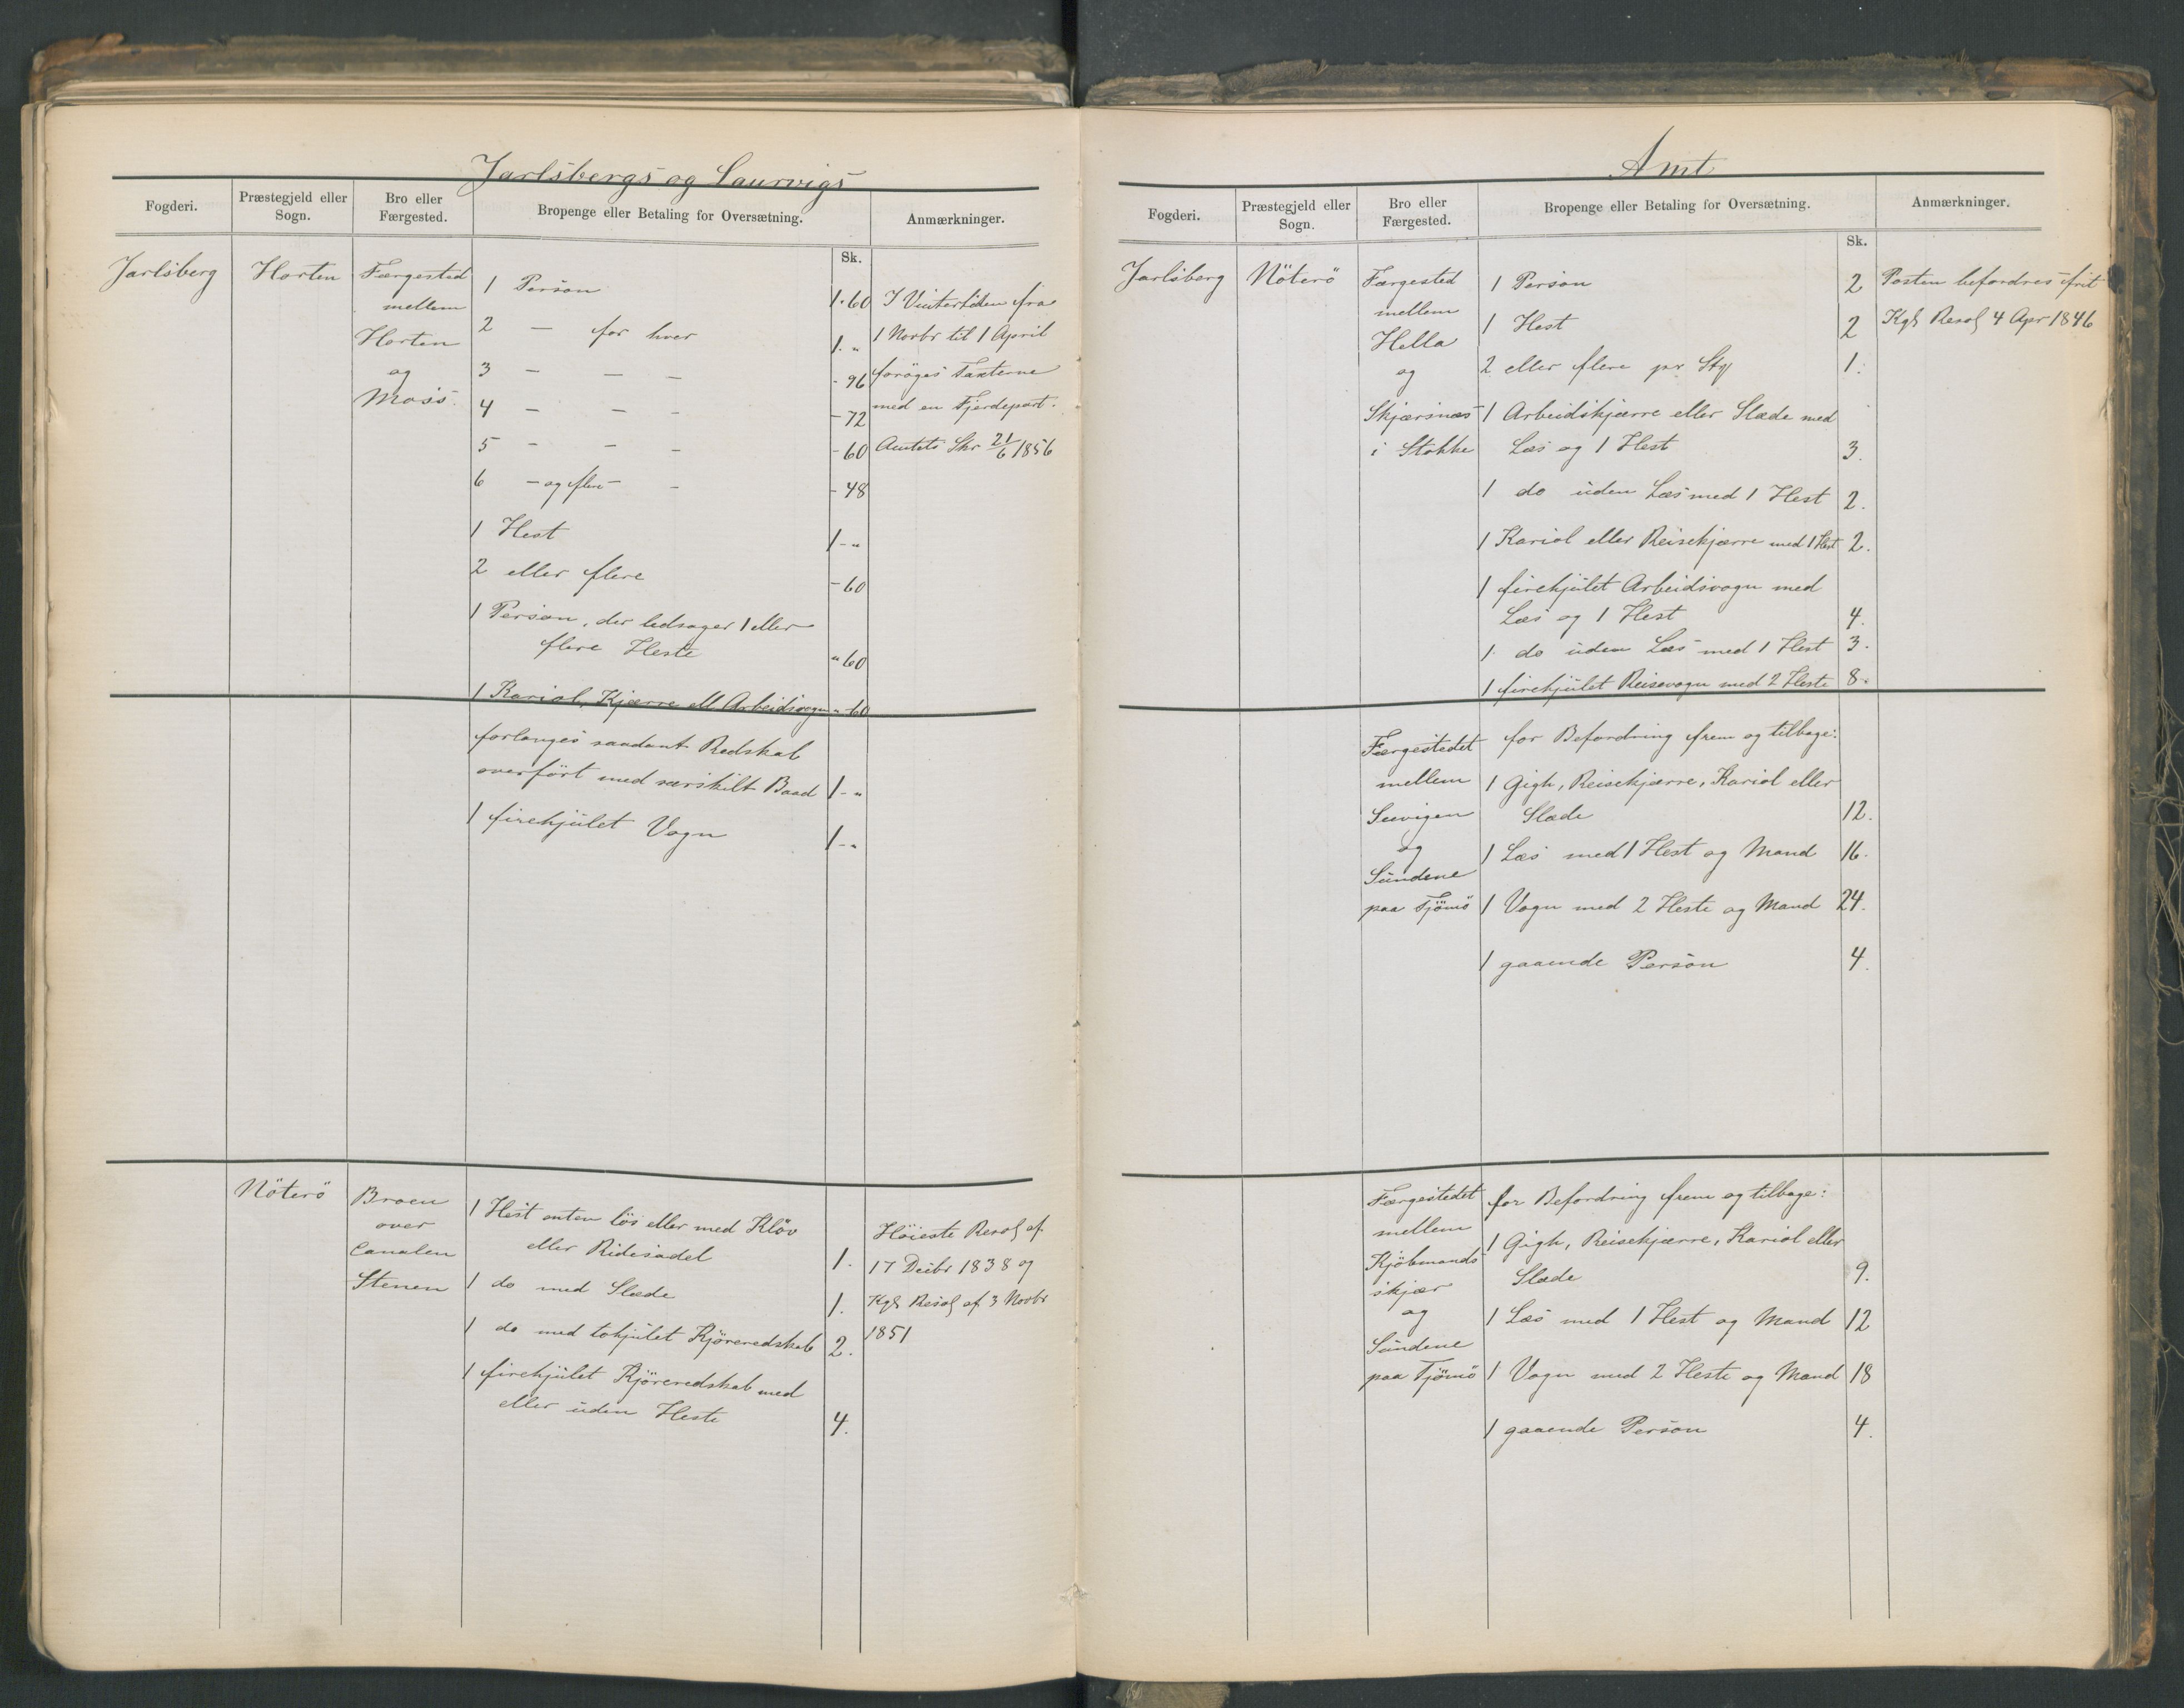 Jarlsbergs og Laurvigs
Fogderi.
Præstegjeld eller Sogn.
Bro eller Færgested.
Bropenge eller Betaling for Oversætning.
Anmærkninger.
Sk.
Jarlsberg
Horten
Færgested
mellem
Horten
og
Moss.
1 Person 1.60
2 — for hver 1. „
3 — — — - 96
4 — — - - 72
5 - — - - 60
6 — og flere — - - 48
1 Hest 1 - „
2 eller flere - 60
1 Person, der ledsager 1 eller
flere Heste „ 60
1 Kariol, Kjærre ell Arbeidsvogn „ 60
forlanges saadant Redskab
overført med særskilt Baad 1 - „
1 firehjulet Vogn 1 - „
I Vintertiden fra
1 Novbr til 1 April
forøges Taxterne
med en Fjerdepart.
Amtets Skr 21/6 1856
Nöterö
Broen
over
Canalen
Stenen
1 Hest enten lös eller med Klöv
eller Ridesadel 1.
1 do med Slæde 1.
1 do med tohjulet Kjöreredskab 2.
1 firehjulet Kjöreredskab med
eller uden Heste 4.
Höieste Resol af
17 Decbr 1838 og
Kgl Resol af 3 Novbr
1851
Amt
Fogderi.
Præstegjeld eller Sogn.
Bro eller Færgested.
Bropenge eller Betaling for Oversætning.
Anmærkninger.
Sk.
Jarlsberg
Nöterö
Færgested
mellem
Hella
og
Skjærsnæs
i Stokke
1 Person 2
1 Hest 2
2 eller flere pr Stk 1.
1 Arbeidskjærre eller Slæde med
Læs og 1 Hest 3.
1 do uden Læs med 1 Hest 2.
1 Kariol eller Reisekjærre med 1 Hest 2.
1 firehjulet Arbeidsvogn med
Læs og 1 Hest 4.
1. do uden Læs med 1 Hest 3.
1 firehjulet Reisevogn med 2 Heste 8.
Posten befordres frit
Kgl Resol 4 Apr 1846
Færgestedet
mellem
og
Sundene
paa Tjömö
for Befordring frem og tilbage:
1 Gigh, Reisekjærre, Kariol eller
Slæde 12.
1 Læs med 1 Hest og Mand 16.
1 Vogn med 2 Heste og Mand 24.
1 gaaende Person 4.
Færgestedet
mellem
Kjöbmands
skjær
og
Sundene
paa Tjömö
for Befordring frem og tilbage:
1 Gigh, Reisekjærre, Kariol eller
Slæde 9.
1 Læs med 1 Hest og Mand 12
1 Vogn med 2 Heste og Mand 18
1 gaaende Person 4.